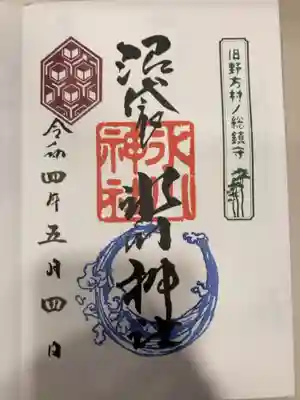 旧野方村ノ総鎮守
沼袋
氷川神社
氷川神社
令和四年五月四日